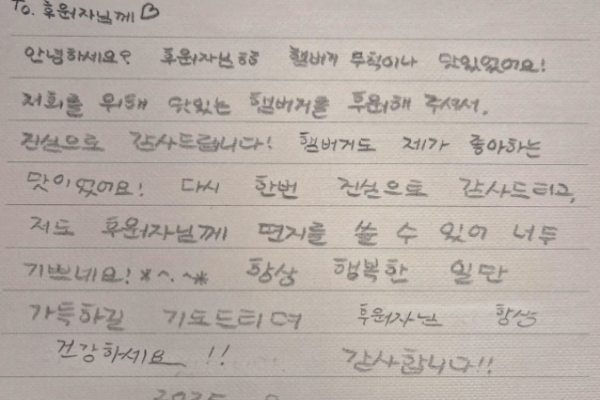 To. 후원자님께♡
안녕하세요? 후원자님ㅎㅎ 햄버거 무척이나 맛있었어요!
저희를 위해 맛있는 햄버거를 후원해 주셔서,
진심으로 감사드립니다! 햄버거도 제가 좋아하는
맛이였어요! 다시 한번 진심으로 감사드리고,
저도 후원자님께 편지를 쓸 수 있어 너무
기쁘네요!*^.^* 항상 행복한 일만
가득하길 기도드리며 후원자님 항상
건강하세요!! 감사합니다!!